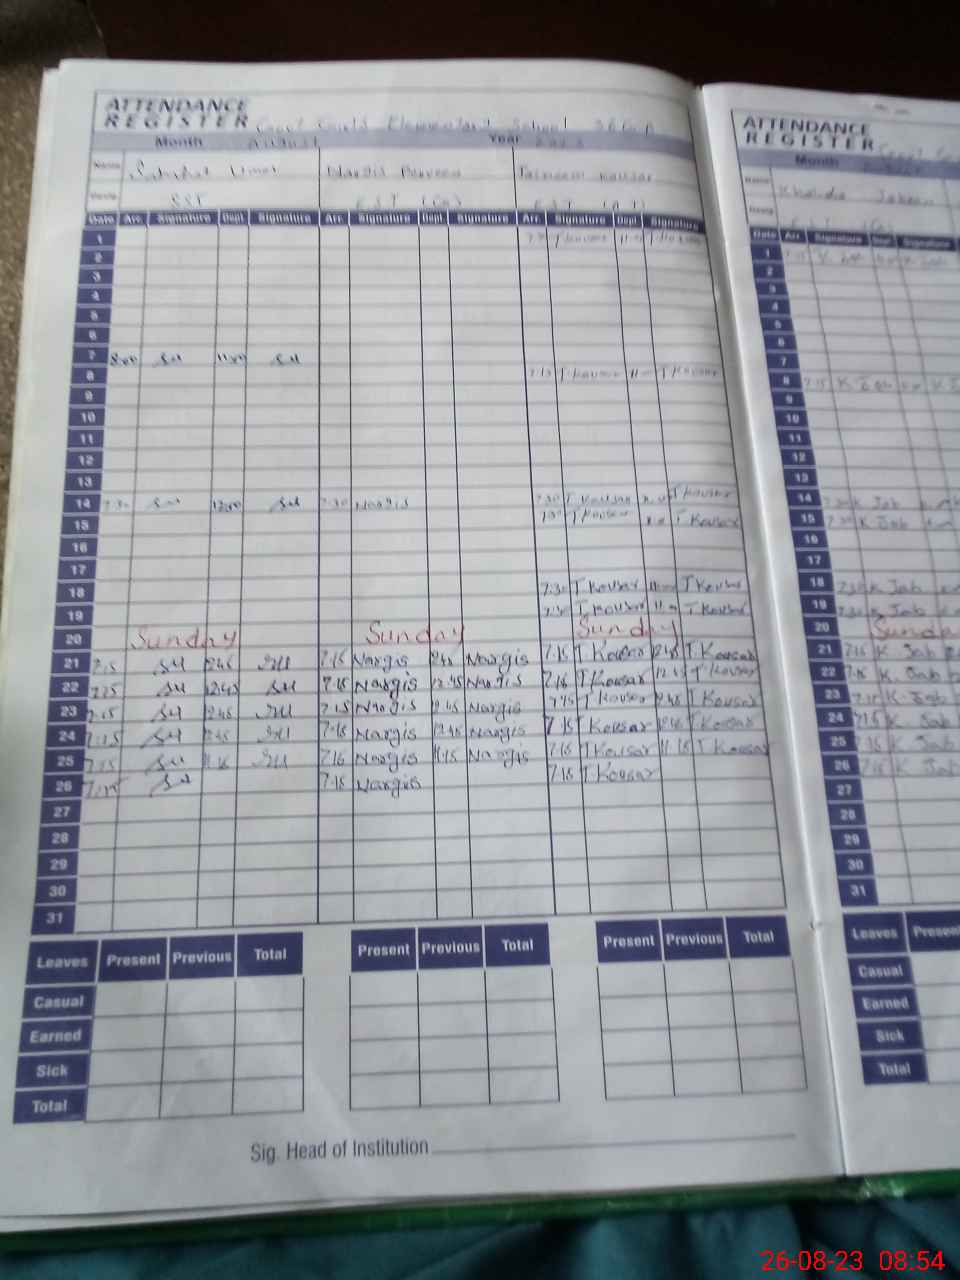 ATTENDANCE ATTENDANCE
REGISTER Elementary School REGISTER
Month August Year Month
Name Umar Nargis Parveen Tasneem Kousar Name Khalida Jabeen
SST EST
Date Arr. Signature Dept. Signature Arr. Signature Dept. Signature Arr. Signature Dept. Signature Date Arr. Signature Dept. Signature
1 T Kousar T Kousar 1
2 2
3 3
4 4
5 5
6 6
7 8:00 SU 11:00 SU 7
8 T Kousar T Kousar 8 7.15 K Jab
9 9
10 10
11 11
12 12
13 13
14 7.30 SU 12:00 SU 7.30 Nargis 7.30 T Kousar T Kousar 14 K Jab
15 7.30 T Kousar T Kousar 15 K Jab
16 16
17 17
18 7.30 T Kousar T Kousar 18 7.30 K Jab
19 7.30 T Kousar T Kousar 19 7.30 K Jab
20 Sunday Sunday Sunday 20 Sunda
21 7.15 SU 12.45 SU 7.15 Nargis 12.45 Nargis 7.15 T Kousar 12.45 T Kousar 21 7.15 K Jab
22 7.15 SU 12.45 SU 7.15 Nargis 12.45 Nargis 7.15 T Kousar 12.45 T Kousar 22 7.15 K Jab
23 7.15 SU 12.45 SU 7.15 Nargis 12.45 Nargis 7.15 T Kousar 12.45 T Kousar 23 7.15 K Jab
24 7.15 SU 12.45 SU 7.15 Nargis 12.45 Nargis 7.15 T Kousar 12.45 T Kousar 24 7.15 K Jab
25 7.15 SU 11.15 SU 7.15 Nargis 11.15 Nargis 7.15 T Kousar 11.15 T Kousar 25 7.15 K Jab
26 7.15 SU 7.15 Nargis 7.15 T Kousar 26 7.15 K Jab
27 27
28 28
29 29
30 30
31 31
Leaves Present Previous Total Present Previous Total Present Previous Total Leaves Present
Casual Casual
Earned Earned
Sick Sick
Total Total
Sig. Head of Institution
26-08-23 08:54